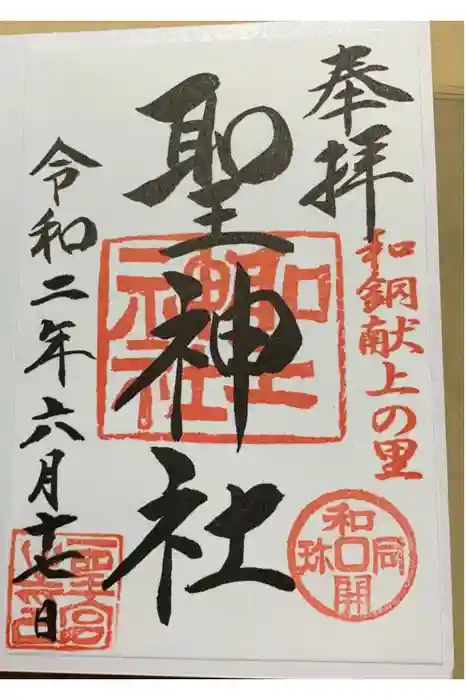 奉拝
和銅献上の里
聖神社
和同開珎
令和二年六月十七日